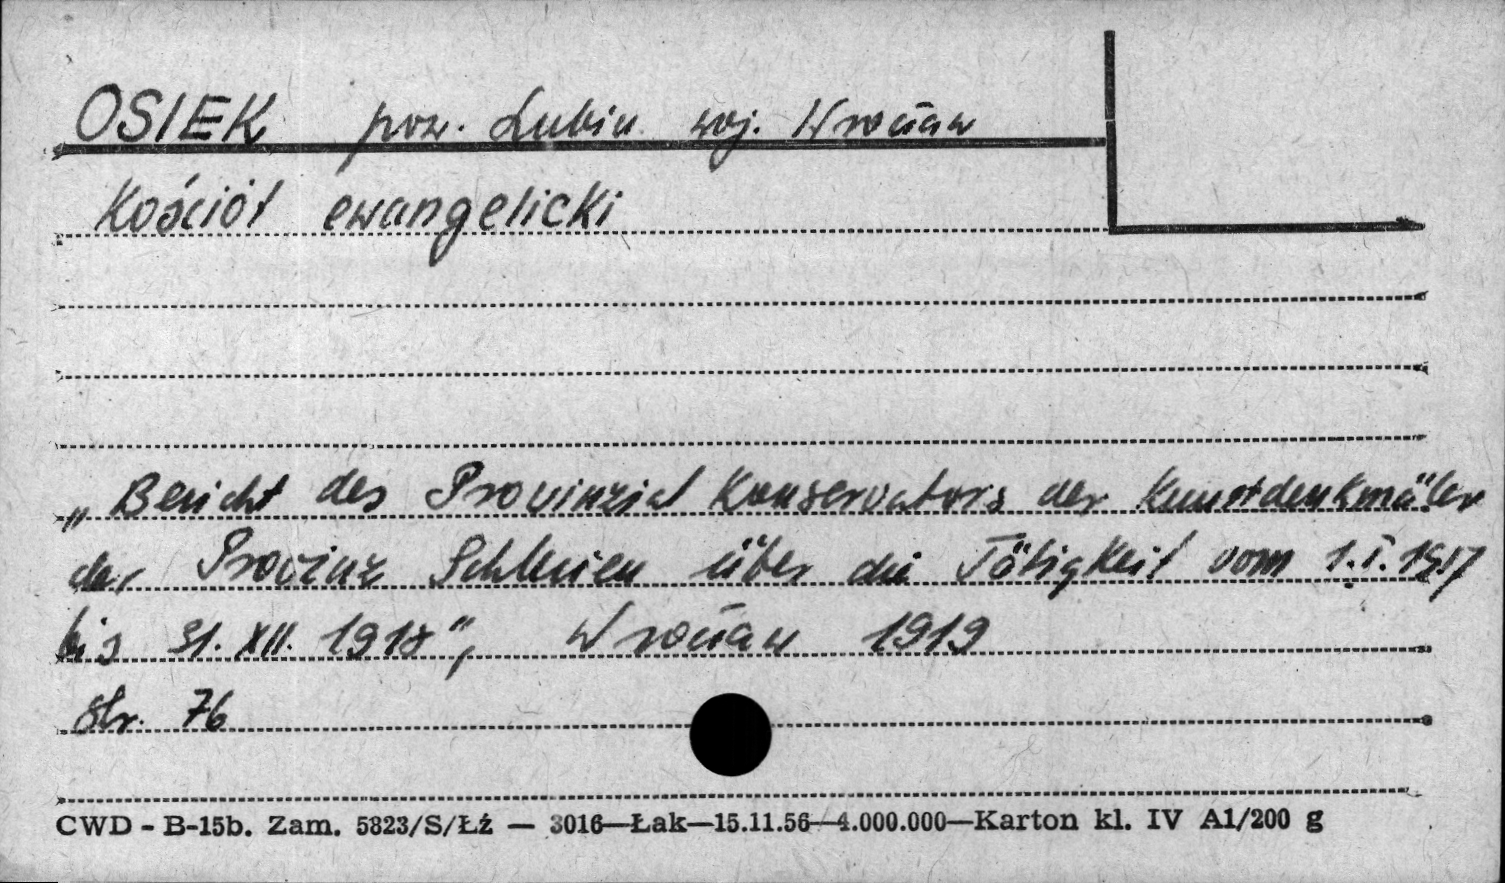 OSIEK pow. Lubin woj. Wrocław
Kościół ewangelicki
„Bericht des Provinzial Konservators der Kunstdenkmäler
der Provinz Schlesien über die Tätigkeit vom 1.I.1917
bis 31.XII.1918”, Wrocław 1919
str. 76
CWD - B-15b. Zam. 5823/S/Łź — 3016—Łak—15.11.56—4.000.000—Karton kl. IV A1/200 g